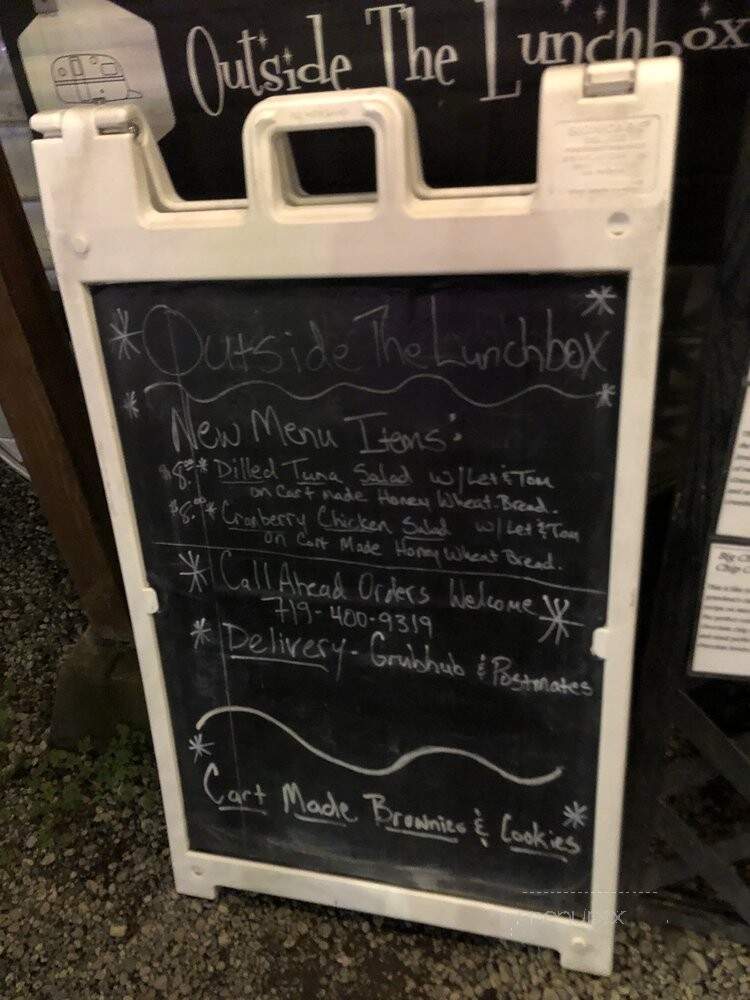 Outside The Lunchbox
Outside The Lunchbox
New Menu Items:
Dilled Tuna Salad w/Let & Tom
on Cart made Honey Wheat Bread.
Cranberry Chicken Salad w/Let & Tom
on Cart Made Honey Wheat Bread.
Call Ahead Orders Welcome
719-400-9319
Delivery - Grubhub & Postmates
Cart Made Brownies & Cookies